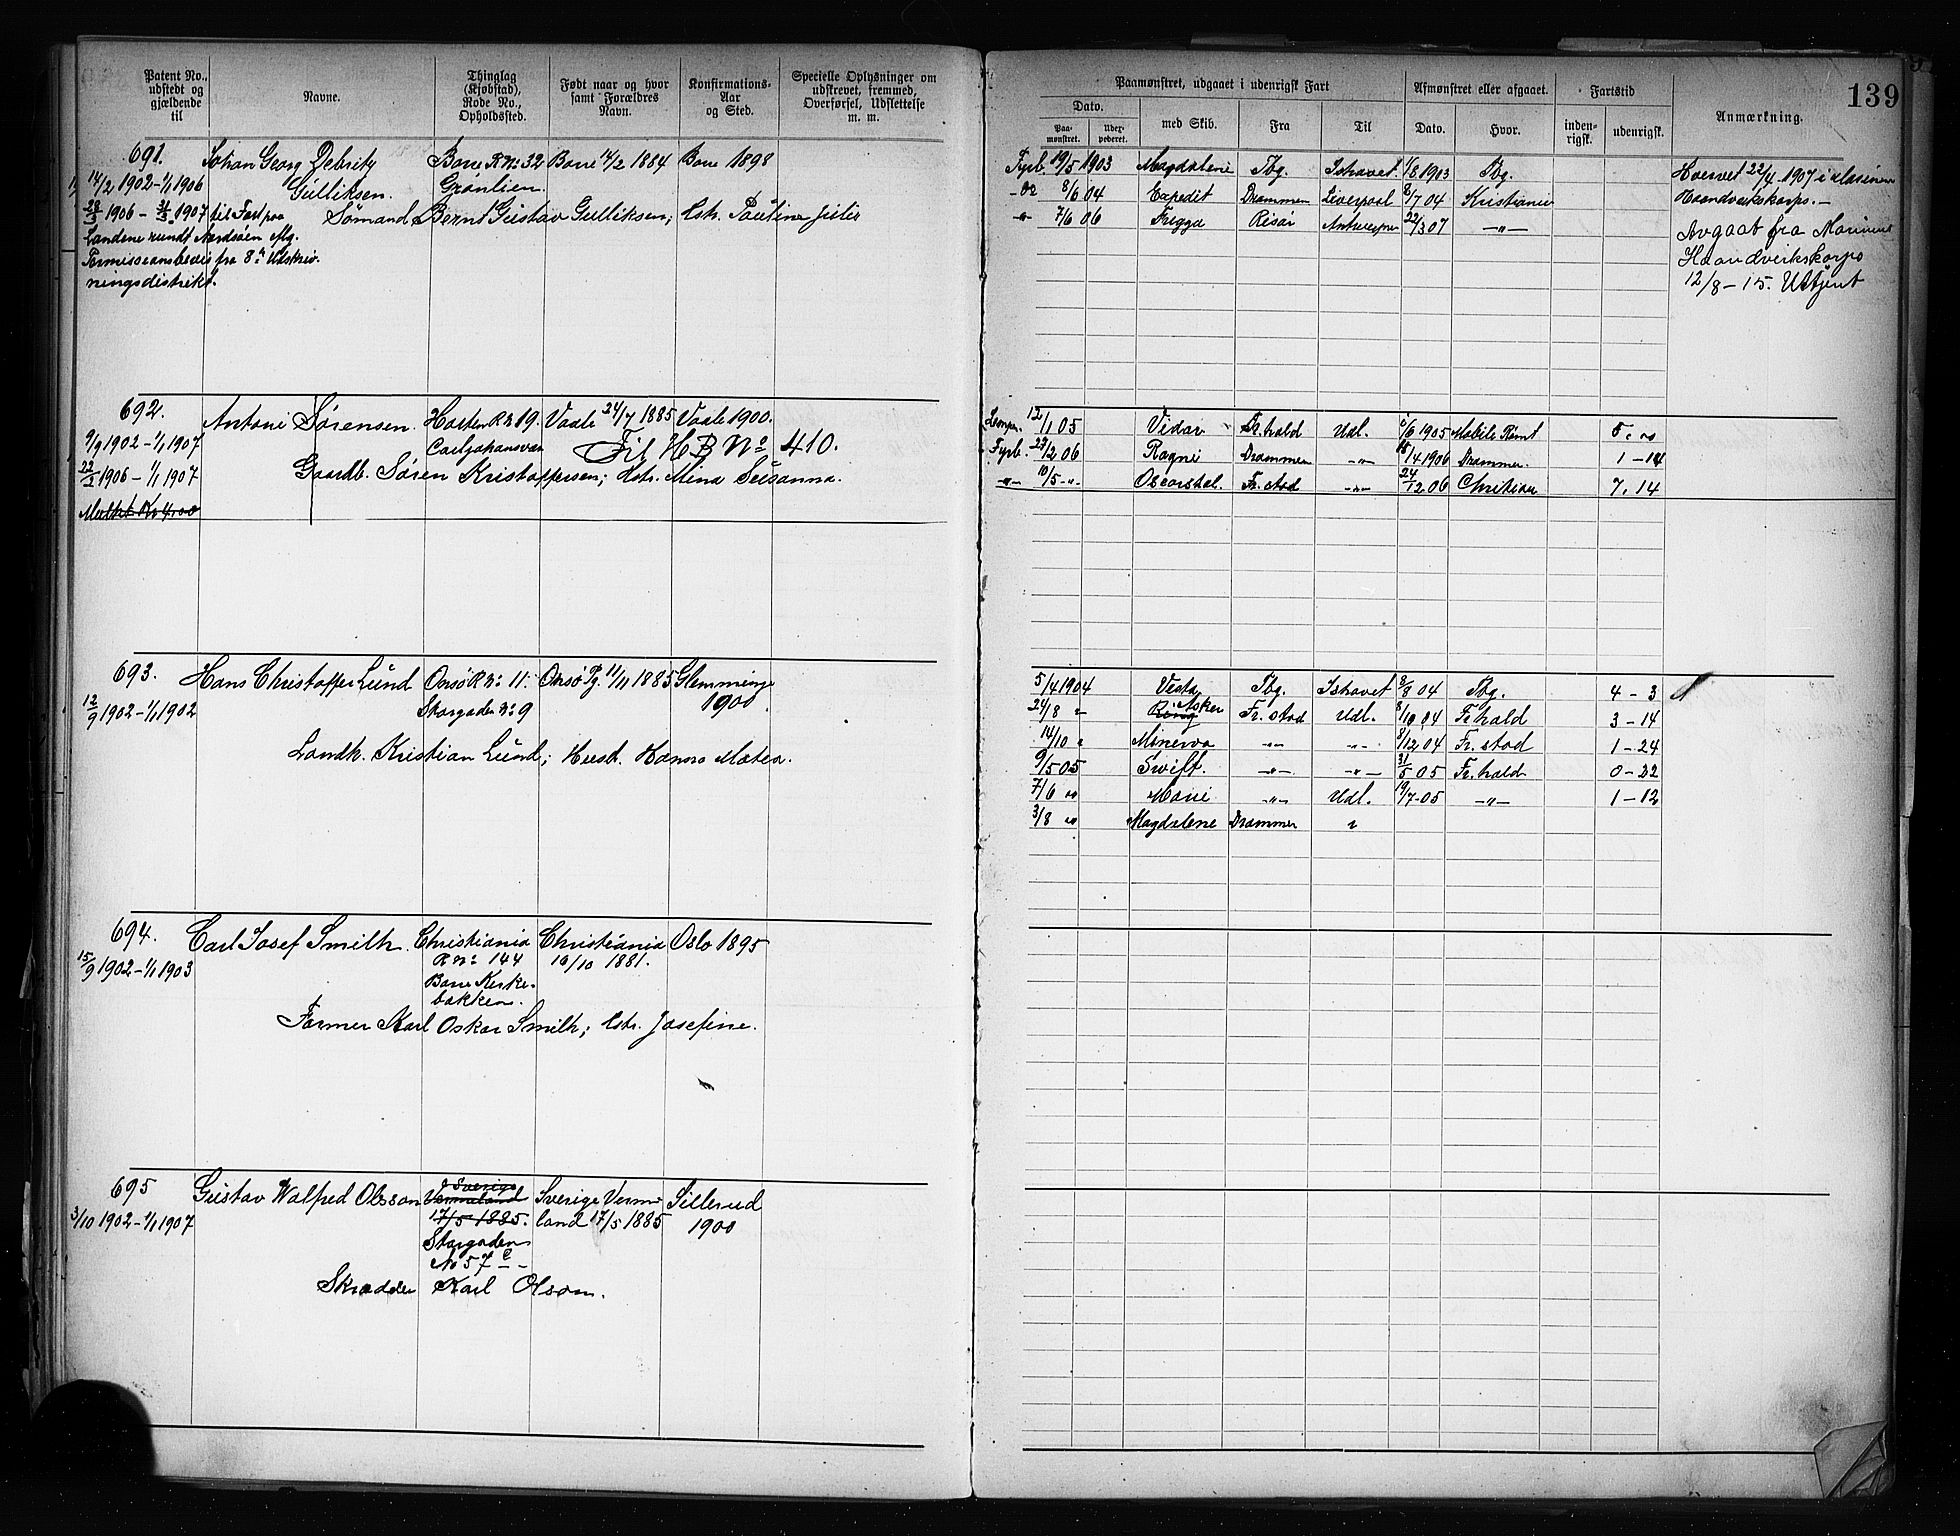 Patent No., udstedt og gjældende til
Navne.
Thinglag (Kjøbstad), Rode No., Opholdssted.
Født naar og hvor samt Forældres Navn.
Konfirmations-Aar og Sted.
Specielle Oplysninger om udskrevet, fremmed, Overførsel, Udslettelse m. m.
691. Johan Georg Debritz Borre R No 32 Borre 14/2 1884 Borre 1898
14/2 1902 – 1/1 1906 Gulliksen. Grønlien.
1906 – 1907 til Fart paa Sømand Bernt Gustav Gulliksen; Hstr. Pauline Julie
Landene rundt Nordsøen Mg.
Permissionsbevis fra 8de Udskriv-
ningsdistrikt.
692. Antoni Sørensen. Horten R No 19. Vaale 24/7 1885 Vaale 1900.
9/9 1902 – 1/1 1907 Carljohansvæn Til H B No 410.
22/2 1906 – 1/1 1907 Gaardb. Søren Kristoffersen; Hstr. Mina Susanna.
Mulkt Kr 4,00
693. Hans Christoffer Lund Onsø R No 11. Onsø Pg. 11/11 1885 Glemminge
12/9 1902 – 1/1 1902 Storgaden No 9 1900
Landh. Kristian Lund; Hust. Hanna Matea.
694. Carl Josef Smith Christiania Christiania Oslo 1895
15/9 1902 – 1/1 1903 R No 144 10/10 1881.
Borre Kirke-
bakken.
Former Karl Oskar Smith; Hstr. Josefine.
695 Gustav Walfred Olsson Sverige Vermeland Sverige Verm- Sillerud
3/10 1902 – 1/1 1907 17/5 1885. land 17/5 1885 1900
Storgaden
No 57 c
Skrædder Karl Olson.
139
Paamønstret, udgaaet i udenrigsk Fart
Afmønstret eller afgaaet.
Fartstid
Anmærkning.
Dato.
Paa-mønstret.
Uder-peveret.
med Skib.
Fra
Til
Dato.
Hvor.
inden-rigsk.
udenrigsk.
Fyrb. 19/5 1903 Magdalene Tbg. Ishavet 1/8 1903 Tbg.
8/6 04 Expedit Drammen Liverpool 8/7 04 Kristiania
7/6 06 Frigga Risør Antwerpen 22/3 07 –"–
Hvervet 22/4 1907 i Marinens
Haandverkskorps. –
Avgaat fra Marinens
Haandverkskorps
12/8 – 15. Uttjent
12/1 05 Vidar Fr.hald Udl. 1/6 1905 Mobile Rømt 5.
Fyrb. 23/2 06 Ragni Drammen –"– 15/4 1906 Drammen. 1 – 14
–"– 10/5 –"– Oscarsdal. Fr.stad –"– 24/12 06 Christian 7. 14
5/4 1904 Vesta Tbg. Ishavet 8/8 04 Tbg. 4 – 3
24/8 " Ring Asker Fr.stad Udl. 8/10 04 Fr.hald 3 – 14
14/10 " Minerva –"– –"– 8/12 04 Fr.stad 1 – 24
9/5 05 Swift. –"– –"– 31/5 05 Fr.hald 0 – 22
7/6 " Marie –"– Udl. 19/7 05 –"– 1 – 12
3/8 " Magdalene Drammen "